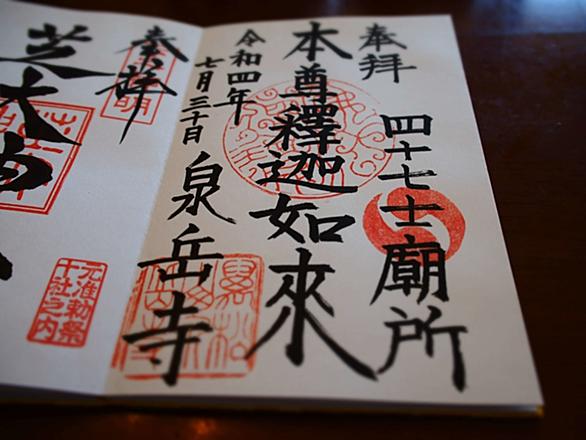 奉拝
四十七士廟所
本尊釋迦如來
令和四年
七月三十日
泉岳寺
奉拝
芝大神
元准勅祭
十社之内